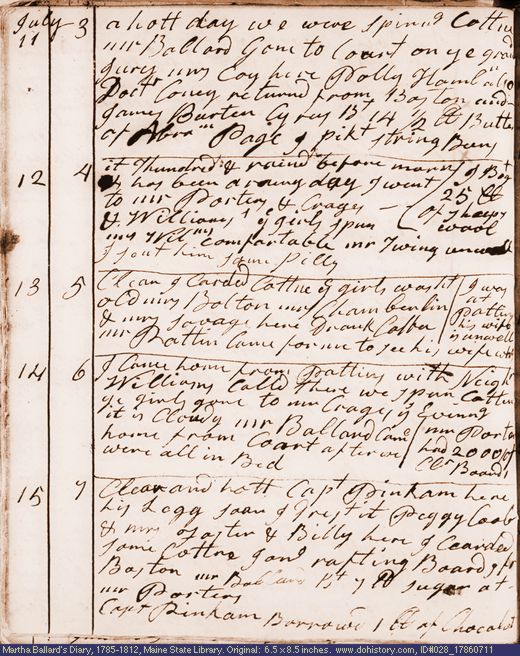 July 11 3 a hott day we were spinng Cottne
mr Ballard Gone to Court on ye grand
Jury mrs Coy here Dolly Hamlin allso
Doctr Coney returned from Boston and
James Burten Cyrus Bt 14 1/2 lb Butter
at Abram Page I pikt string Beens
12 4 it Thundred & raind before morng I Bot
it has been a rainy day I went 25 lb
to mr Porters & Crages of Sheeps
& Williams's ye girls spun wool
mrs Willms comfortable mr Twing unwell
I sent him some Pills
13 5 Clear I Carded Cottne ye girls washt I was
old mrs Bolton mrs Chamberlin at
& mrs Savage here Drank Coffee Pattins
mr Pattin Came for me to see his wife his wife
is unwell
14 6 I Came home from Pattins with Neighr
Williams Called there we spun Cottne
ye girls gone to mr Crages ys Evinng
it is Cloudy mr Ballard Came mr Porter
home from Court after we had 2000 of
were all in Bed Clr Boards
15 7 Clear and hott Capt Pinkham here
his Legg soar I Drest it Peggy Cool
& mrs Foster & Billy here I Cearded
some Cottne Jons rafting Boards for
Boston mr Ballard Bt 7 lb sugar at
mr Porters
Capt Pinkham Borrowd 1 lb of Chocolat
Martha Ballard's Diary, 1785-1812, Maine State Library. Original: 6.5 x 8.5 inches. www.dohistory.com, ID#028_17860711